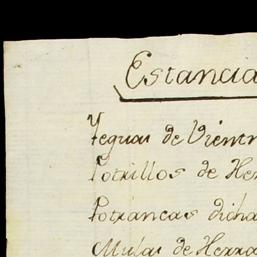 Estancia
Yeguas de Vientr
Potrillos de He
Potrancas dicha
Mulas de Herra